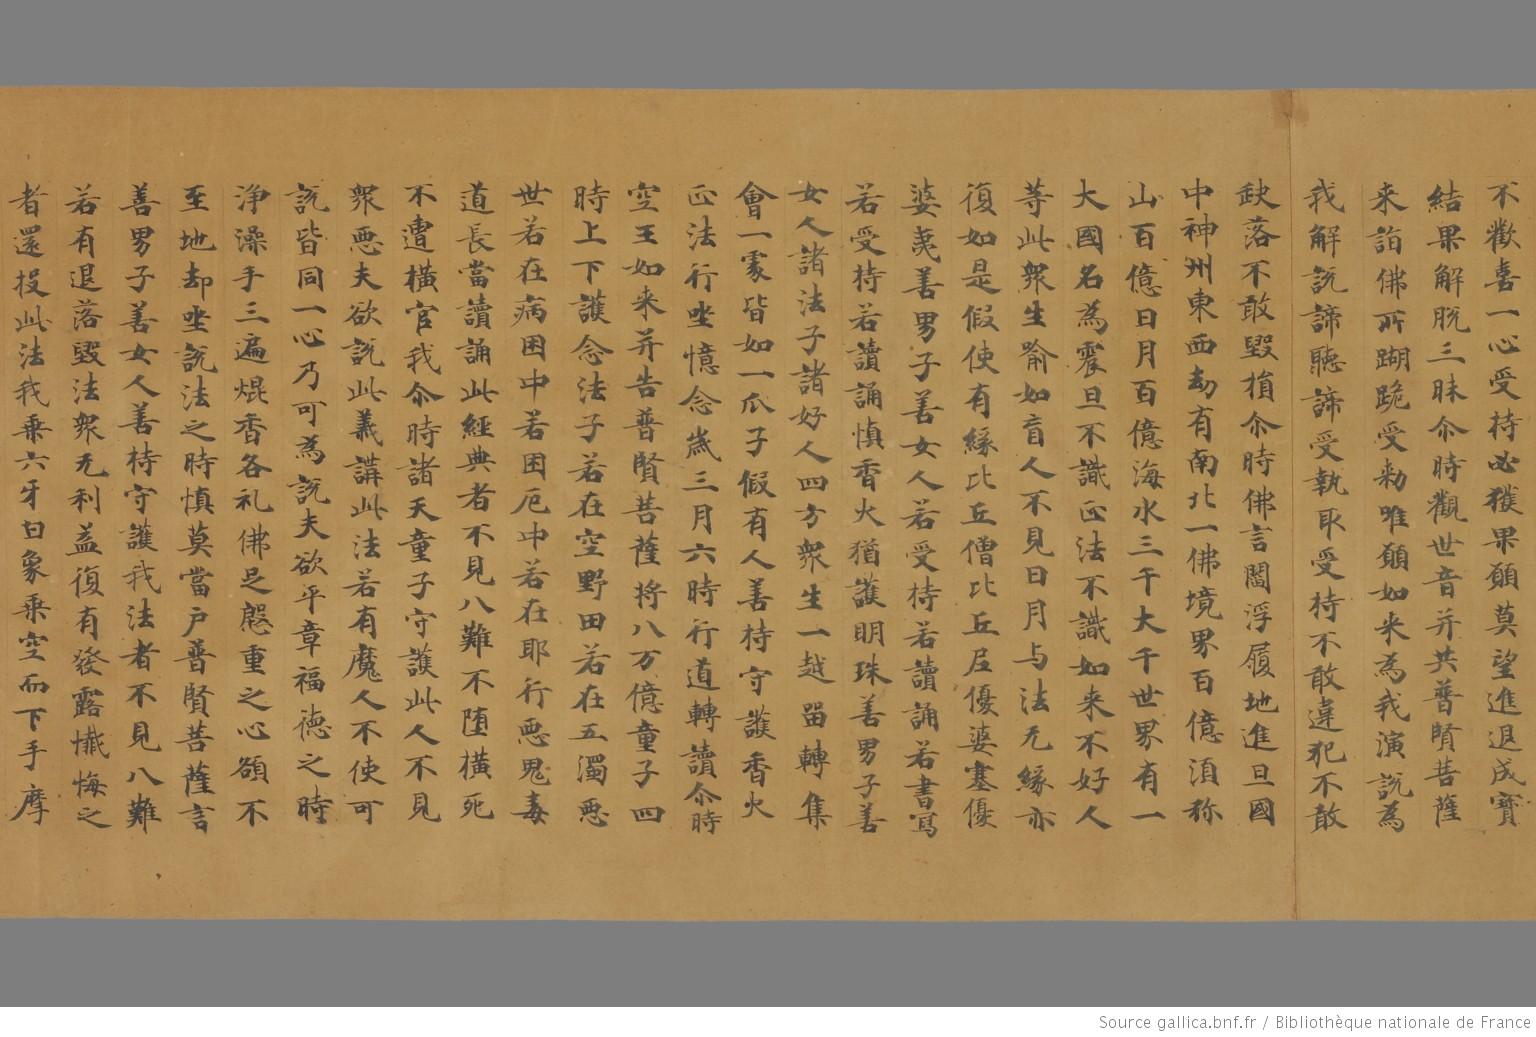 不歡喜一心受持必獲果願莫望進退成寶
結果解脱三昧尒時觀世音并共普賢菩薩
来詣佛所蹦跪受勑唯願如来為我演説為
我解説諦聽諦受執取受持不敢違犯不敢
缺落不敢毀損尒時佛言閻浮履地進旦國
中神州東西劫有南北一佛境界百億湏称
山百億日月百億海水三千大千世界有一
大國名為震旦不識正法不識如来不好人
等此衆生踰如盲人不見日月与法无緣亦
復如是假使有緣比丘僧比丘𡰱優婆塞優
婆夷善男子善女人若受持若讀誦若書寫
若受持若讀誦慎香火猶護明珠善男子善
女人諸法子諸好人四方衆生一越留轉集
會一處皆如一爪子假有人善持守護香火
正法行坐憶念歲三月六時行道轉讀尒時
空王如来并告普賢菩薩将八万億童子四
時上下護念法子若在空野田若在五濁悪
世若在病困中若困厄中若在耶行悪鬼毒
道長當讀誦此經典者不見八難不堕橫死
不遭橫官我尒時諸天童子守護此人不見
衆悪夫欲説此義講此法若有魔人不使可
説皆同一心乃可為説夫欲平章福徳之時
浄澡手三遍焜香各礼佛足慇重之心頟不
至地却坐説法之時慎莫當户普賢菩薩言
善男子善女人善持守護我法者不見八難
若有退落毀法衆无利益復有發露懺悔之
者還投此法我乗六牙白象乗空而下手摩
Source gallica.bnf.fr / Bibliothèque nationale de France